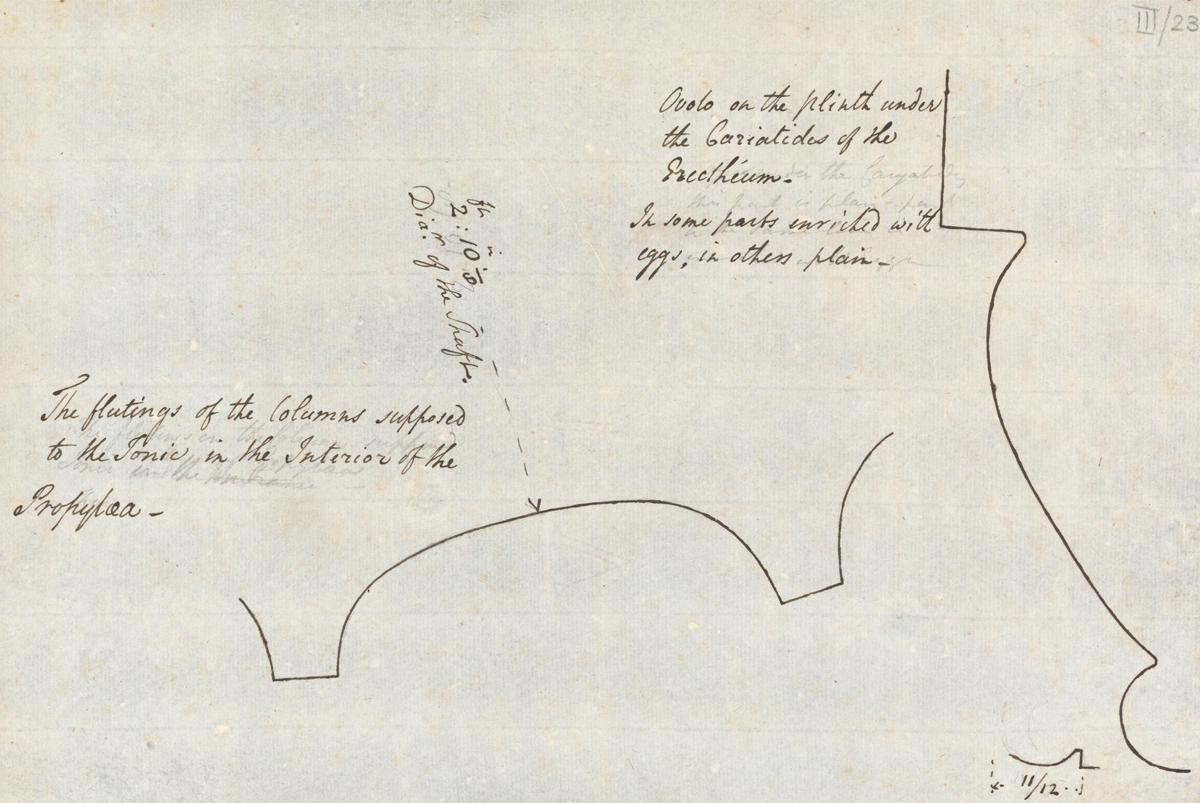 III/23
Ovolo on the plinth under
the Cariatides of the
Erectheum -
In some parts enriched with
eggs, in others plain -
ft in
2:10
Dia.r of the Shaft.
The flutings of the Columns supposed
to the Ionic in the Interior of the
Propylæa -
11/12